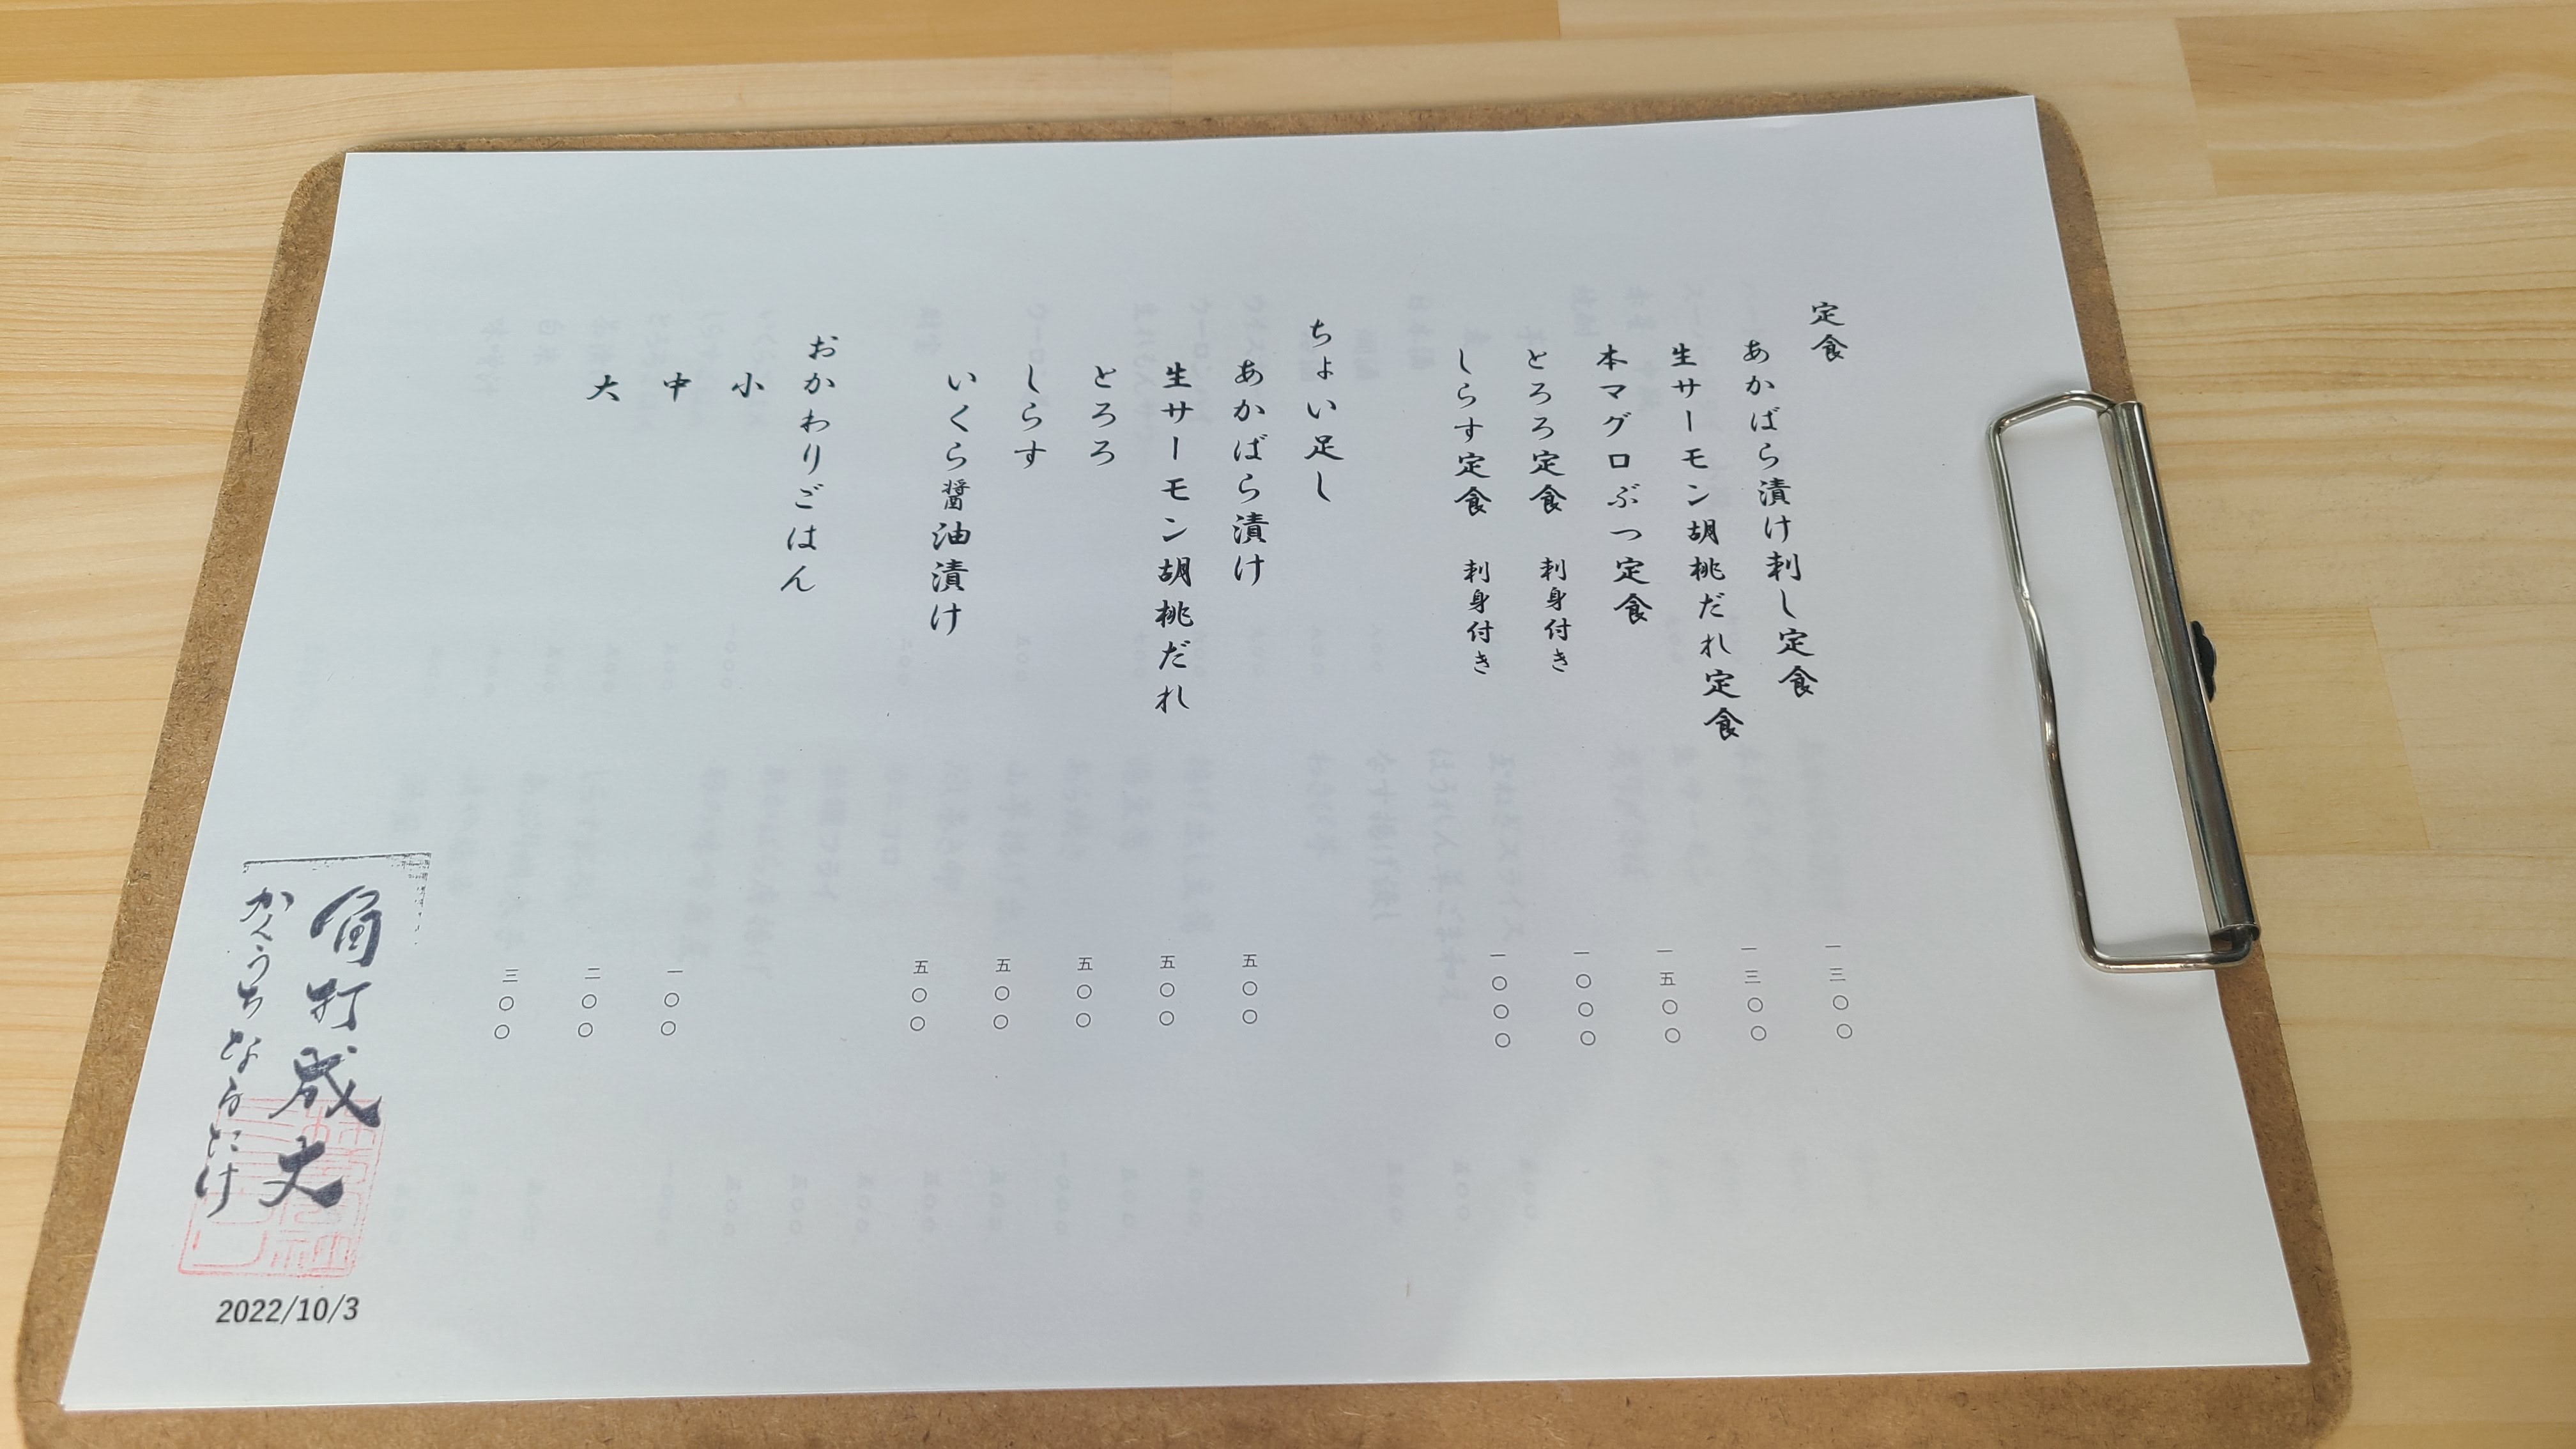 定食
あかばら漬け刺し定食 一三〇〇
生サーモン胡桃だれ定食 一三〇〇
本マグロぶつ定食 一五〇〇
とろろ定食 刺身付き 一〇〇〇
しらす定食 刺身付き 一〇〇〇
ちょい足し
あかばら漬け 五〇〇
生サーモン胡桃だれ 五〇〇
とろろ 五〇〇
しらす 五〇〇
いくら醤油漬け 五〇〇
おかわりごはん
小 一〇〇
中 二〇〇
大 三〇〇
角打
かくうち
2022/10/3